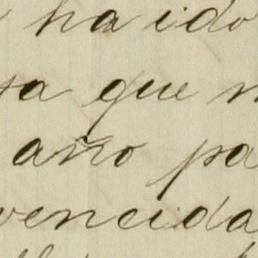 ha ido
que
año pa
vencida